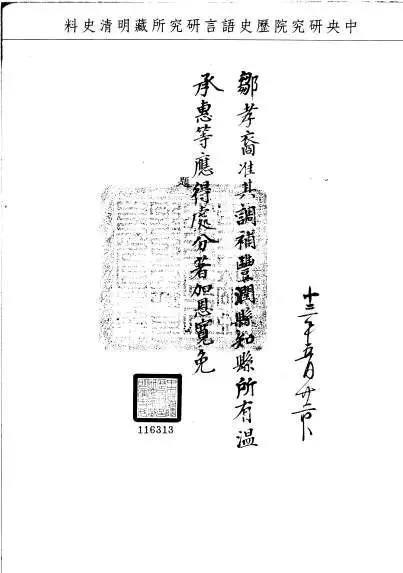 中央研究院歷史語言研究所藏明清史料
鄒孝裔准其調補豐潤縣知縣所有溫
承惠等應得處分著加恩寬免
題
116313